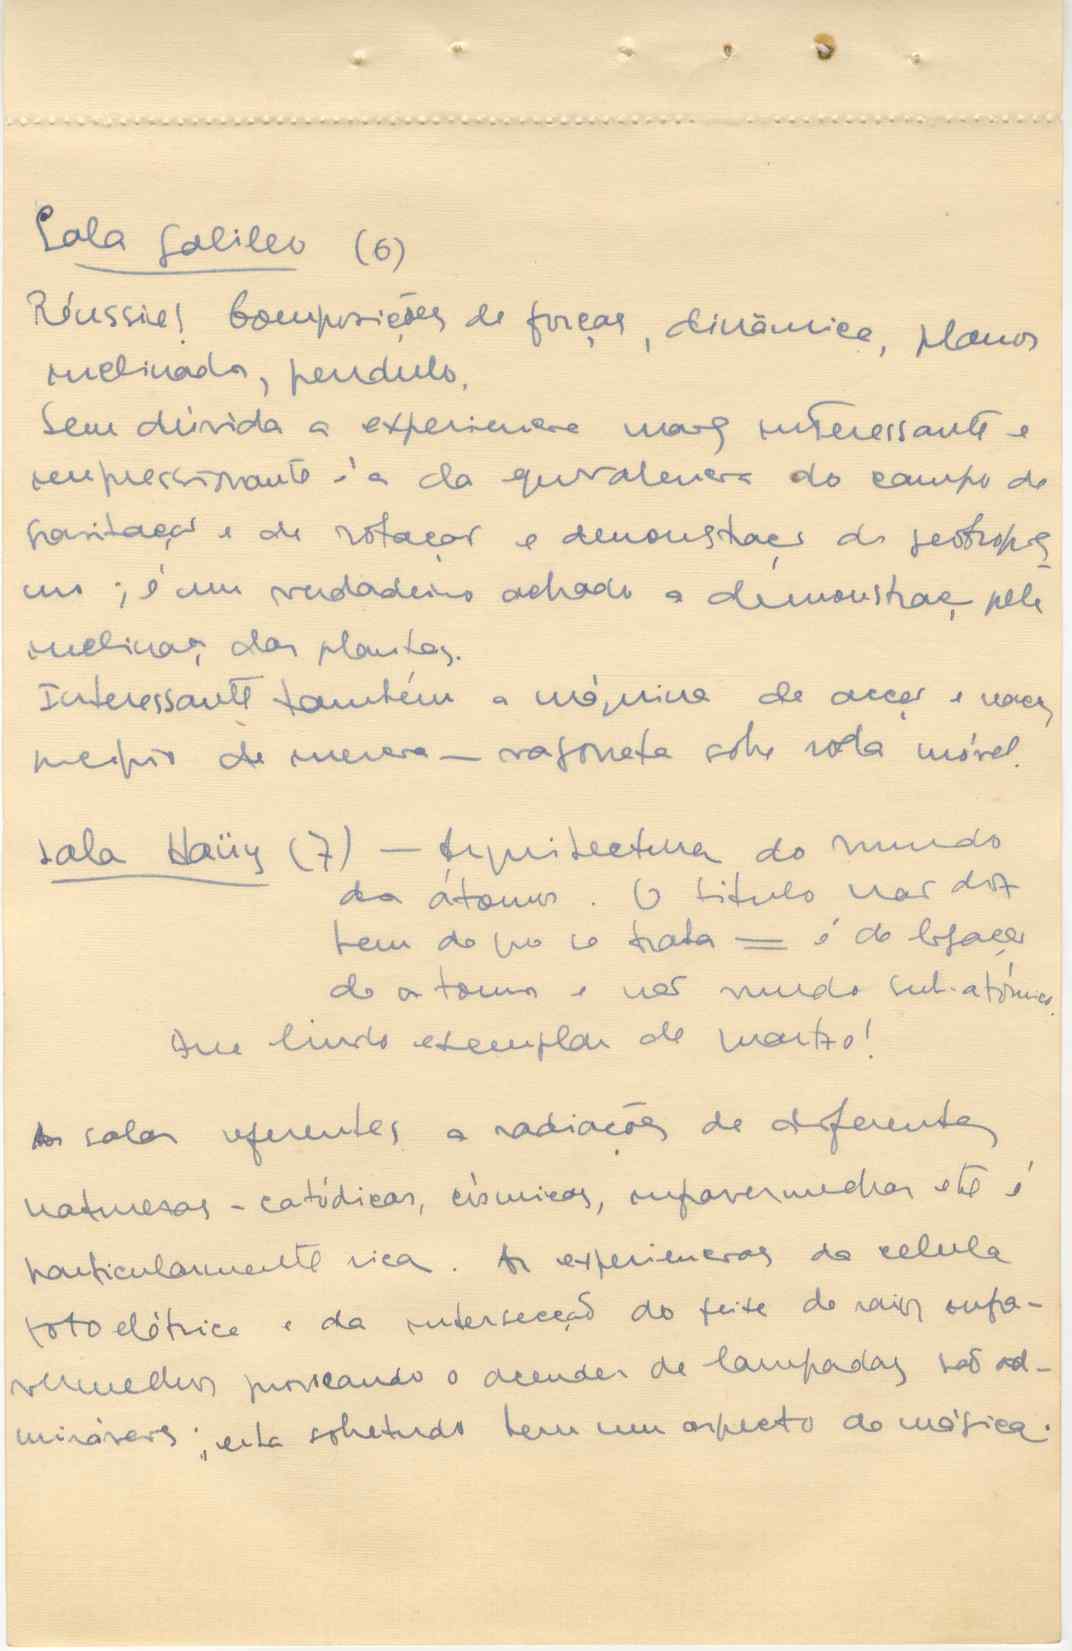 Sala Galileo (6)
Réussie! Composições de forças, dinâmica, planos
inclinados, pendulo.
Sem dúvida a experiencia mais interessante e
impressionante é a da equivalencia do campo de
gravitação e de rotação e demonstração do geotropis
mo ; é um verdadeiro achado a demonstraç. pela
inclinaç. das plantas.
Interessante também a máquina de acção e reacç,
principio de inercia — vagoneta sobre roda móvel.
Sala Haüy (7) — Arquitectura do mundo
dos átomos. O titulo não diz
bem do que se trata = é de ligações
de atomos e não mundo sub-atómico.
Um lindo exemplar de quartzo!
As salas referentes a radiações de diferentes
naturezas - catódicas, cósmicas, infravermelhas etc é
particularmente rica. As experiencias da celula
fotoelétrica e da intersecção do feixe de raios infra-
vermelhos provocando o acender de lampadas são ad-
miráveis ; esta sobretudo tem um aspecto de mágica.